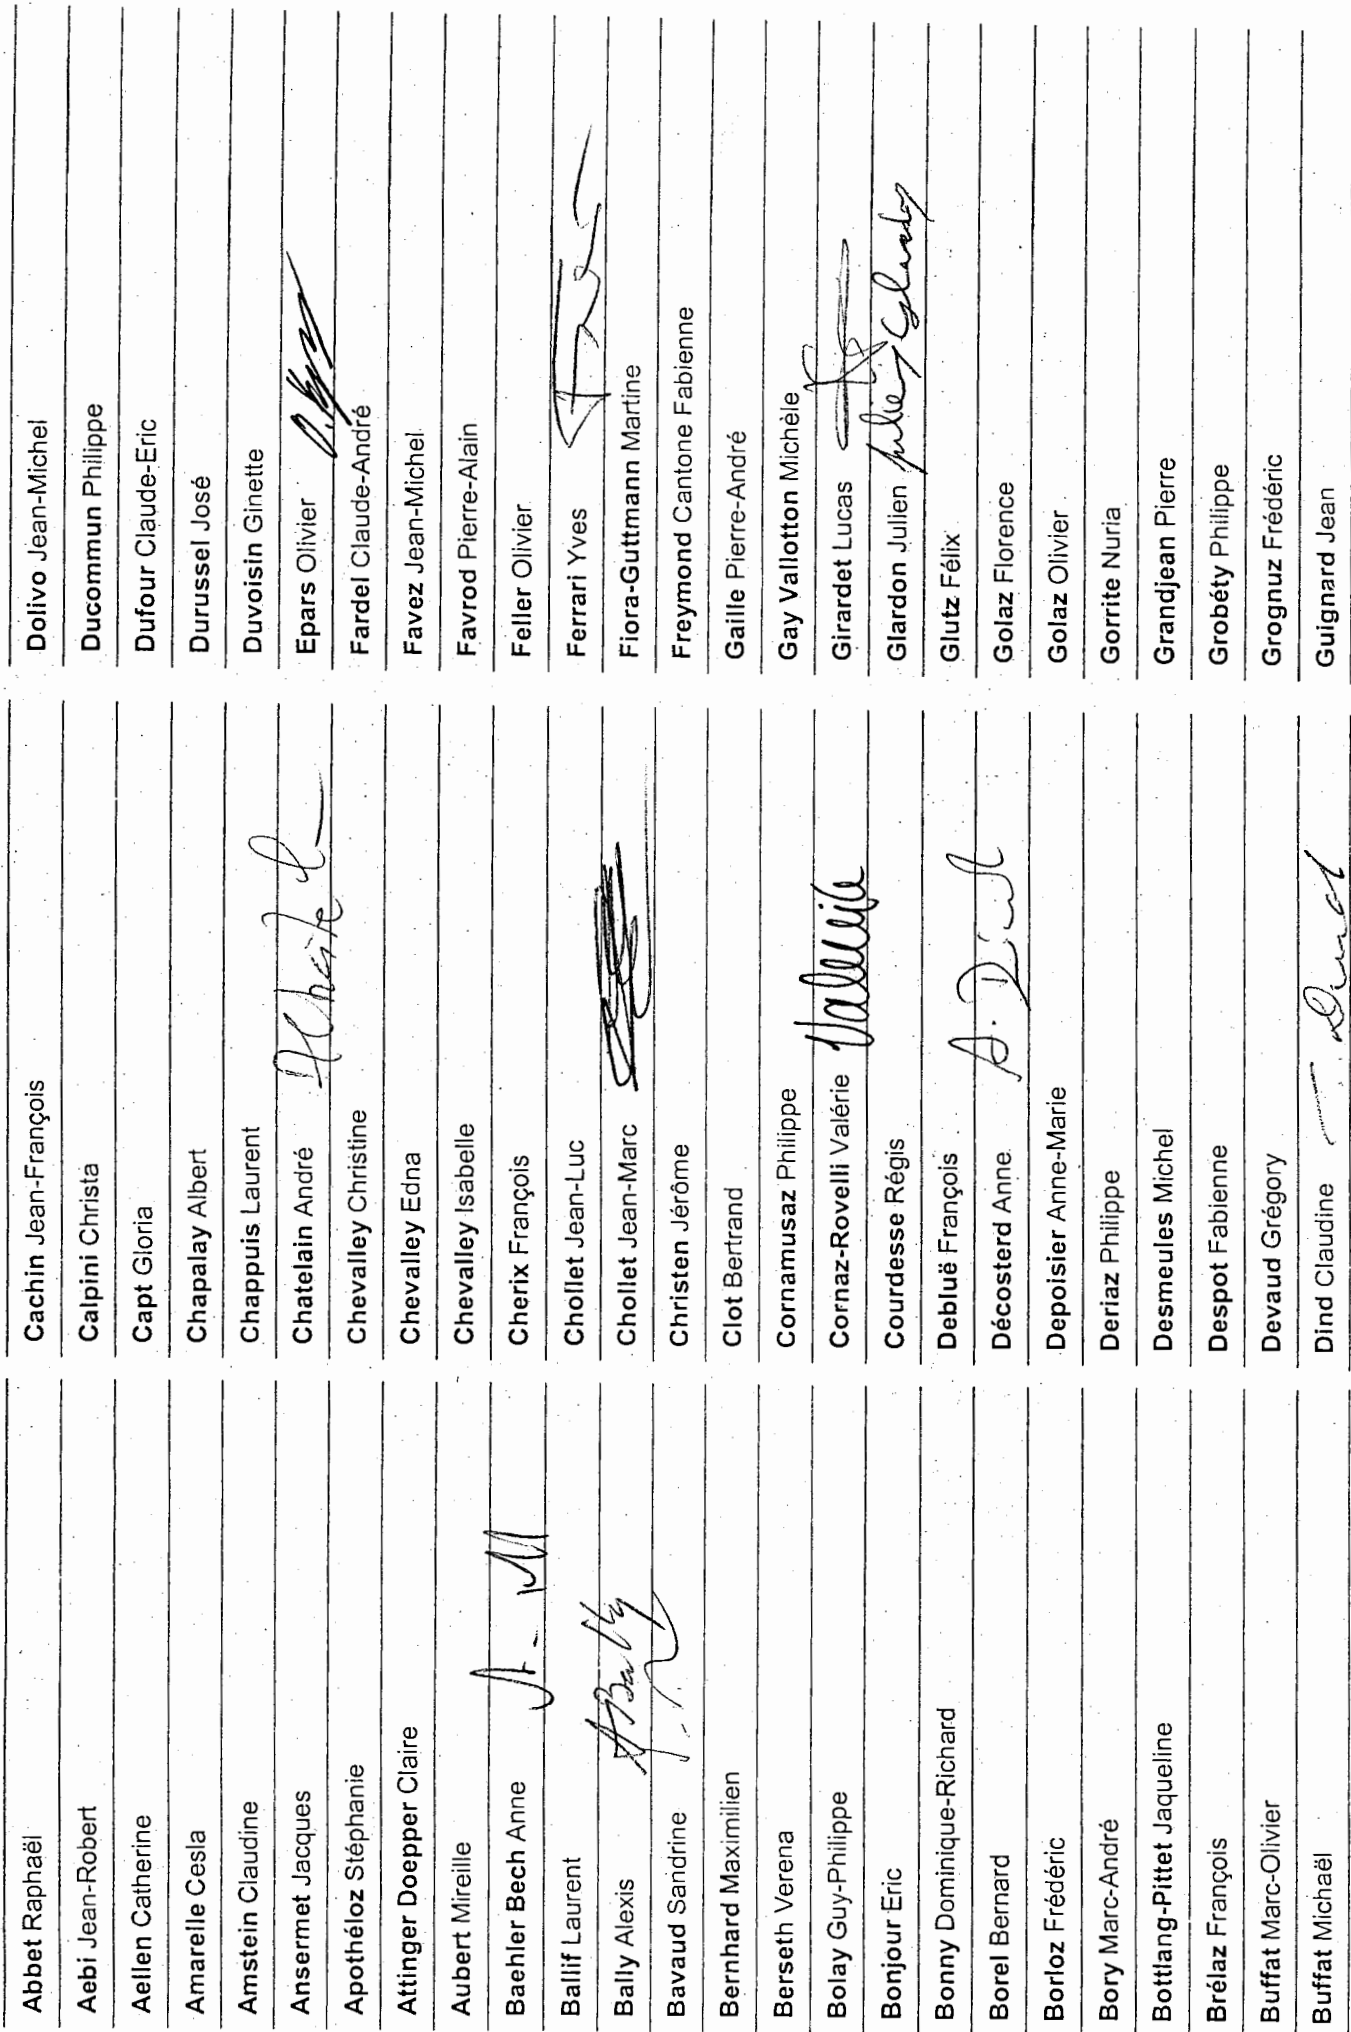 Abbet Raphaël
Aebi Jean-Robert
Aellen Catherine
Amarelle Cesla
Amstein Claudine
Ansermet Jacques
Apothéloz Stéphanie
Attinger Doepper Claire
Aubert Mireille
Baehler Bech Anne
Ballif Laurent
Bally Alexis ABally
Bavaud Sandrine
Bernhard Maximilien
Berseth Verena
Bolay Guy-Philippe
Bonjour Eric
Bonny Dominique-Richard
Borel Bernard
Borloz Frédéric
Bory Marc-André
Bottlang-Pittet Jaqueline
Brélaz François
Buffat Marc-Olivier
Buffat Michaël
Cachin Jean-François
Calpini Christa
Capt Gloria
Chapalay Albert
Chappuis Laurent
Chatelain André
Chevalley Christine
Chevalley Edna
Chevalley Isabelle
Cherix François
Chollet Jean-Luc
Chollet Jean-Marc
Christen Jérôme
Clot Bertrand
Cornamusaz Philippe
Cornaz-Rovelli Valérie
Courdesse Régis
Debluë François
Décosterd Anne
Depoisier Anne-Marie
Deriaz Philippe
Desmeules Michel
Despot Fabienne
Devaud Grégory
Dind Claudine
Dolivo Jean-Michel
Ducommun Philippe
Dufour Claude-Eric
Durussel José
Duvoisin Ginette
Epars Olivier
Fardel Claude-André
Favez Jean-Michel
Favrod Pierre-Alain
Feller Olivier
Ferrari Yves
Fiora-Guttmann Martine
Freymond Cantone Fabienne
Gaille Pierre-André
Gay Vallotton Michèle
Girardet Lucas
Glardon Julien Julien Glardon
Glutz Félix
Golaz Florence
Golaz Olivier
Gorrite Nuria
Grandjean Pierre
Grobéty Philippe
Grognuz Frédéric
Guignard Jean